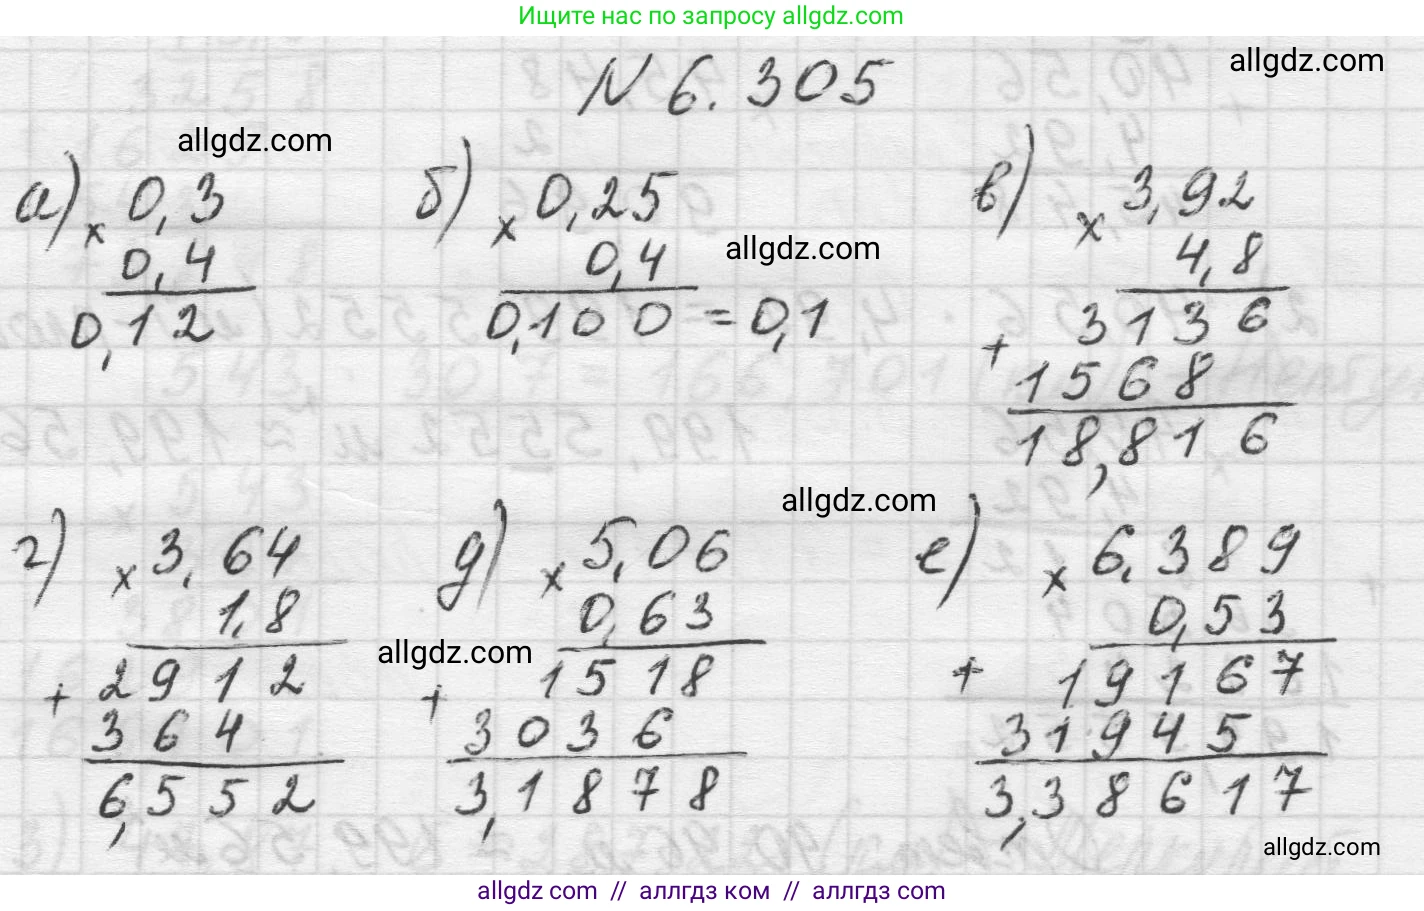 Ищите нас по запросу allgdz.com
N 6.305
allgdz.com
allgdz.com
а) × 0,3
0,4
0,12
б) × 0,25
0,4
0,100 = 0,1
allgdz.com
в) × 3,92
4,8
+ 3136
1568
18,816
г) × 3,64
1,8
+ 2912
364
6,552
allgdz.com
д) × 5,06
0,63
+ 1518
3036
3,1878
allgdz.com
е) × 6,389
0,53
+ 19167
31945
3,38617
allgdz.com
allgdz com // аллгдз ком // аллгдз com